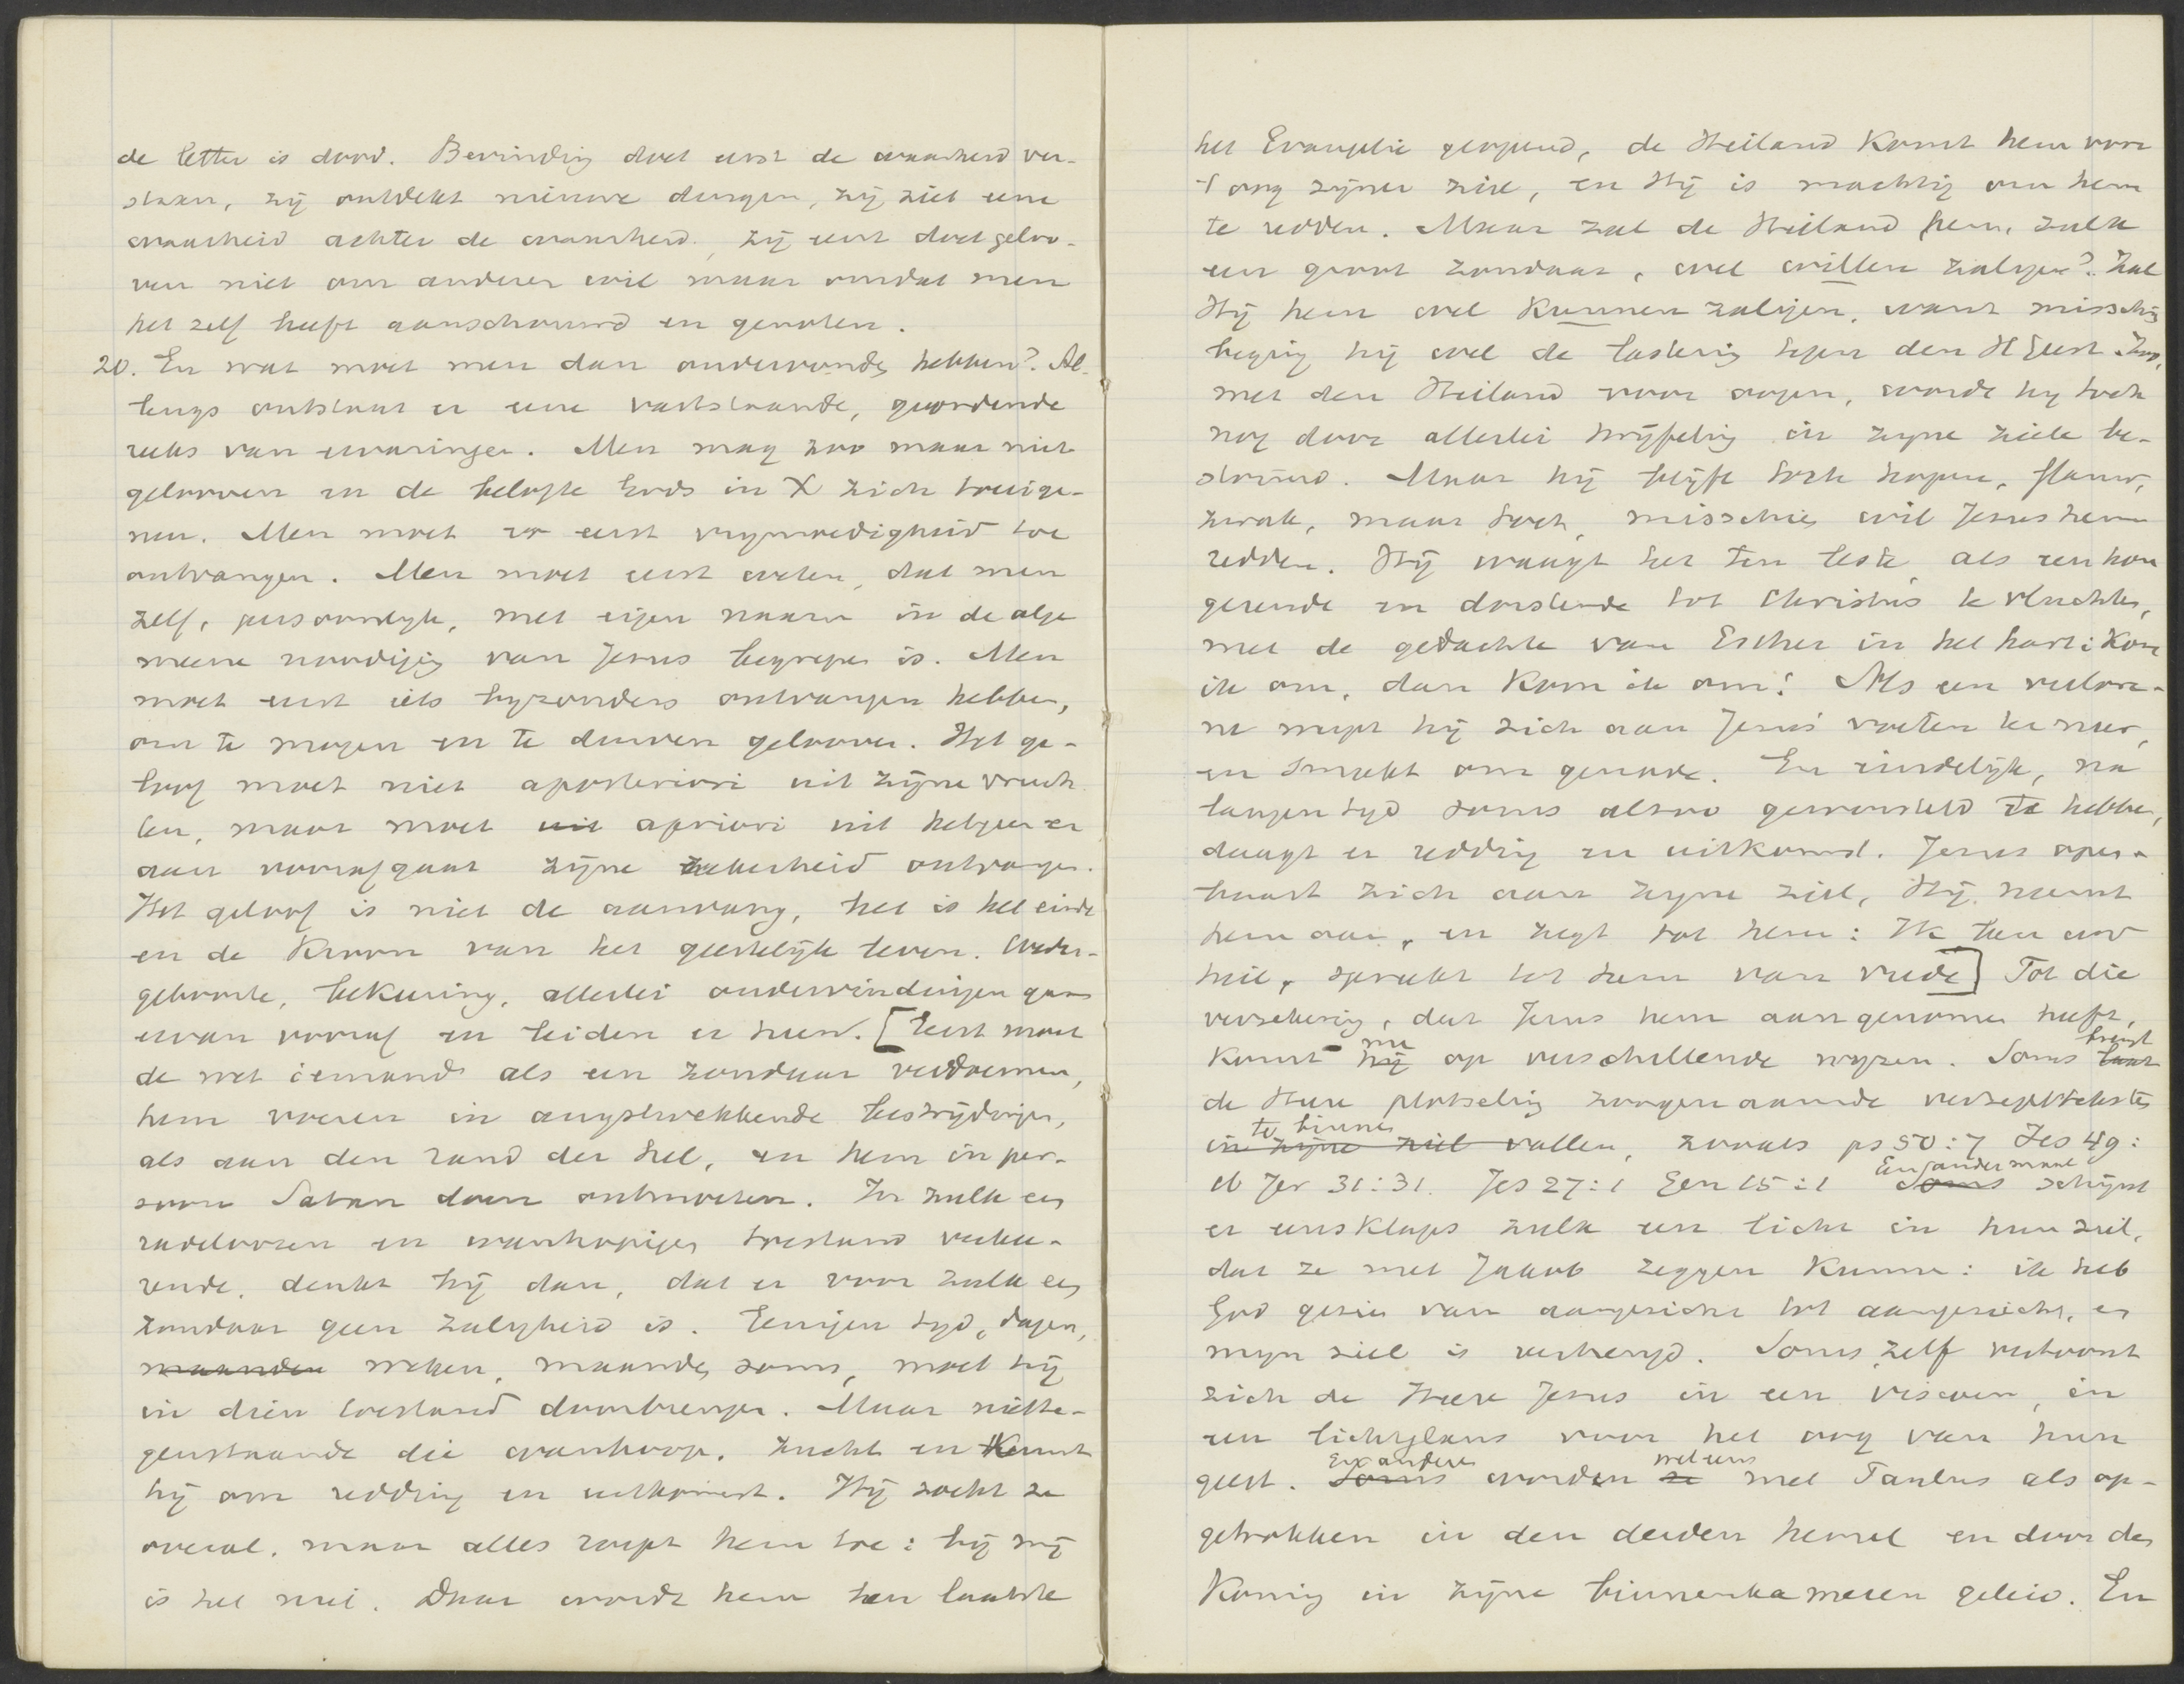 de letter is dood. Bevinding doet eerst de waarheid ver-
staan, zij ontdekt nieuwe dingen, zij ziet eene
waarheid achter de waarheid, zij eerst doet geloo-
ven niet om anderer wil maar omdat men
het zelf heeft aanschouwd en genoten.
20. En wat moet men dan ondervonden hebben? Al-
lengs ontstaat er eene vaststaande, geordende
reeks van ervaringen. Men mag zoo maar niet
gelooven en de belofte Gods in X zich toeeige-
nen. Men moet er eerst vrijmoedigheid toe
ontvangen. Men moet eerst weten, dat men
zelf, persoonlijk, met eigen naam in de alge
meene noodiging van Jezus begrepen is. Men
moet eerst iets byzonders ontvangen hebben,
om te mogen en te durven gelooven. Het ge-
loof moet niet aposteriori uit zijne vruch
ten, maar moet uit apriori uit hetgeen er
aan voorafgaat zijne zekerheid ontvangen.
Het geloof is niet de aanvang, het is het einde
en de kroon van het geestelijk leven. Weder-
geboorte, bekeering, allerlei ondervindingen gaan
ervan vooraf en leiden er heen. [Eerst moet
de wet iemand als een zondaar verdoemen,
hem voeren in angstwekkende bestrijdingen,
als aan den rand der hel, en hem in per-
soon Satan doen ontmoeten. In zulk een
radeloozen en wanhopigen toestand verkee-
rende, denkt hij dan, dat er voor zulk een
zondaar geen zaligheid is. Eenigen tyd, dagen,
maanden weken, maanden soms, moet hij
in dien toestand doorbrengen. Maar niette-
genstaande die wanhoop, zucht en kermt
hij om redding en uitkomst. Hij zoekt ze
overal, maar alles roept hem toe: bij mij
is het niet. Daar wordt hem ten laatste
het Evangelie geopend, de Heiland komt hem voor
't oog zijner ziel, en Hij is machtig om hem
te redden. Maar zal de Heiland hem, zulk
een groot zondaar, wel willen zaligen? Zal
Hij hem wel kunnen zaligen, want misschien
beging hij wel de lastering tegen den H Geest. Zoo,
met den Heiland voor oogen, wordt hy toch
nog door allerlei twijfeling in zyne ziele be-
stormd. Maar hij blijft toch hopen, flauw,
zwak, maar toch, misschien wil Jezus hem
redden. Hij waagt het ten leste, als een hon
gerende en dorstende tot Christus te vluchten,
met de gedachte van Esther in het hart: Kom
ik om, dan kom ik om! Als een verlore-
ne werpt hij zich aan Jezus' voeten ter neer,
en smeekt om genade. En eindelijk, na
langen tyd soms alzoo geworsteld te hebben,
daagt er redding en uitkomst. Jezus open-
baart zich aan zyne ziel, Hij neemt
hem aan, en zegt tot hem: Ik ben uw
heil, spreekt tot hem van vrede] Tot die
verzekering, dat Jezus hem aangenomen heeft,
komt hij nu op verschillende wyzen. Soms laat brengt
de Heere plotseling zoogenaamde verzegeltekste
in zijne ziel te binnen vallen, zooals ps 50:7 Jes 49:
16 Jer 31:31. Jes 27:1 Gen 15:1 Soms Een andermaal schijnt
er eensklaps zulk een licht in hun ziel,
dat ze met Jakob zeggen kunnen: ik heb
God gezien van aangezicht tot aangezicht, en
myn ziel is verhengd. Soms zelf vertoont
zich de Heere Jezus in een visioen, in
een lichtglans voor het oog van hun
geest. Soms En anderen worden ze wel eens met Paulus als op-
getrokken in den derden hemel en door den
Koning in zijne binnenkameren geleid. En